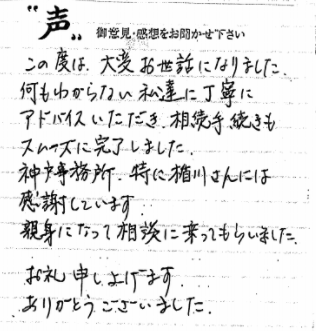 "声" 御意見・感想をお聞かせ下さい
この度は、大変お世話になりました。
何もわからない私達に丁寧に
アドバイスいただき、相続手続きも
スムーズに完了しました。
神戸事務所、特に楢川さんには
感謝しています。
親身になって相談に乗ってもらいました。
お礼申し上げます。
ありがとうございました。